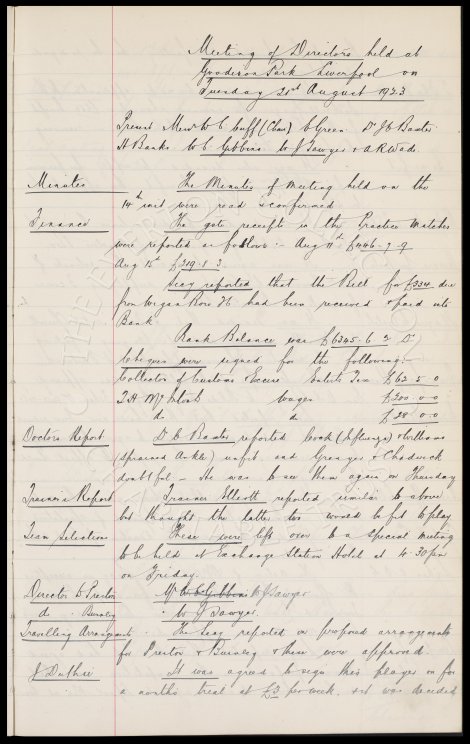 Meeting of Directors held at
Goodison Park Liverpool on
Tuesday 21st August 1923
Present Messrs W C Cuff (Chair) C Green Dr J C Baxter
A Banks W C Gibbins W J Sawyer & A R Wade
Minutes The Minutes of Meeting held on the
14th inst were read & confirmed
Finance The gate receipts in the Practice Matches
were reported as follows :- Aug 11th £446-7-9
Aug 15th £219-1-3
Secy reported that the Bill for £334 due
from Wigan Boro FC had been received & paid into
Bank
Bank Balance was £6345.6.2
Cheques were signed for the following:-
Collector of Customs & Excise Ents Tax £62 5 0
T.H. McIntosh wages £200.0.0
do do £28 0 0
Doctors Report Dr C Baxter reported Cock & Williams
(sprained Ankle) unfit and Grenyer & Chadwick
doubtful - He was to see them again on Thursday
Trainers Report Trainer Elliott reported similar to above
but thought the latter two would be fit to play
Team Selection These were left over to a special meeting
to be held at Exchange Station Hotel at 4.30 pm
on Friday.
Director to Preston Mr W C Gibbins W J Sawyer
do . Burnley W J Sawyer.
Travelling Arrangmts. The Secy reported on proposed arrangements
for Preston & Burnley & these were approved.
J Duthie It was agreed to sign this player on for
a months trial at £3 per week, & it was decided